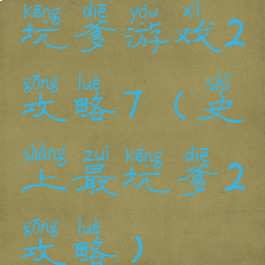 kēng diē yóu xì
坑爹游戏2
gōng lüè shǐ
攻略7（史
shàng zuì kēng diē
上最坑爹2
gōng lüè
攻略）